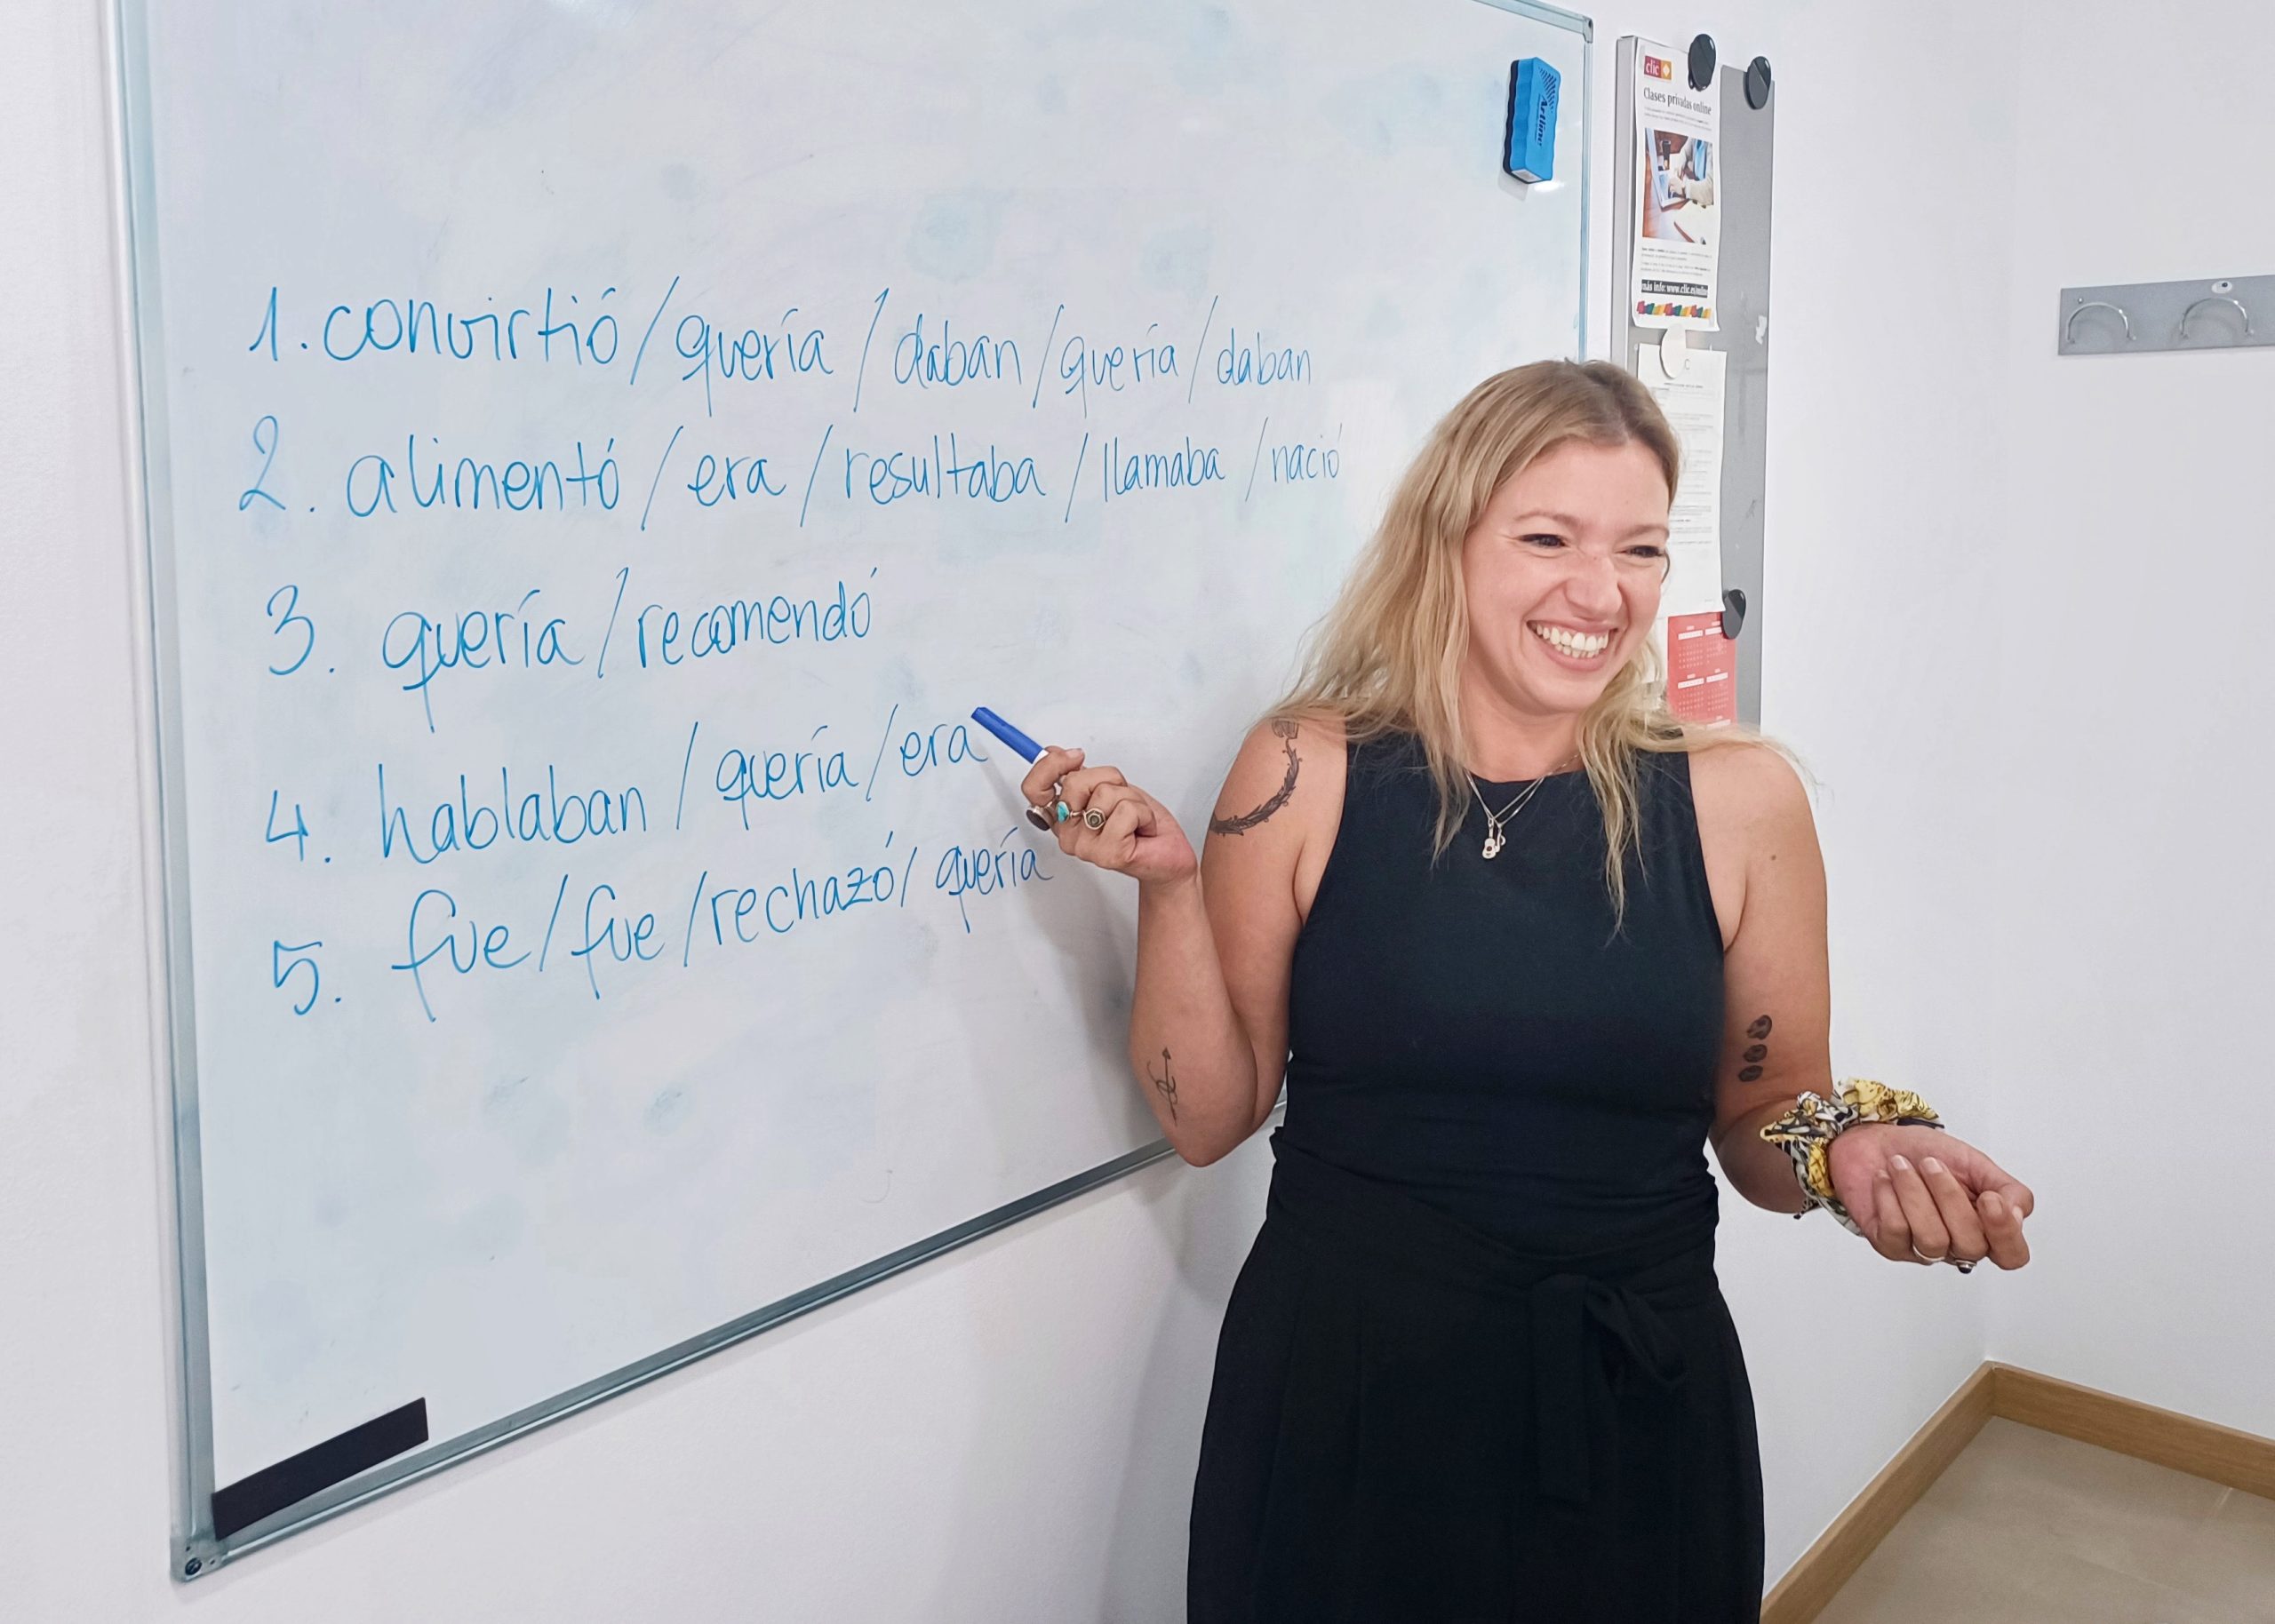 1. convirtió / quería / daban / quería / daban
2. alimentó / era / resultaba / llamaba / nació
3. quería / recomendó
4. hablaban / quería / era
5. fue / fue / rechazó / quería
Artline
clic
Clases privadas online
más info: www.clic.es/online